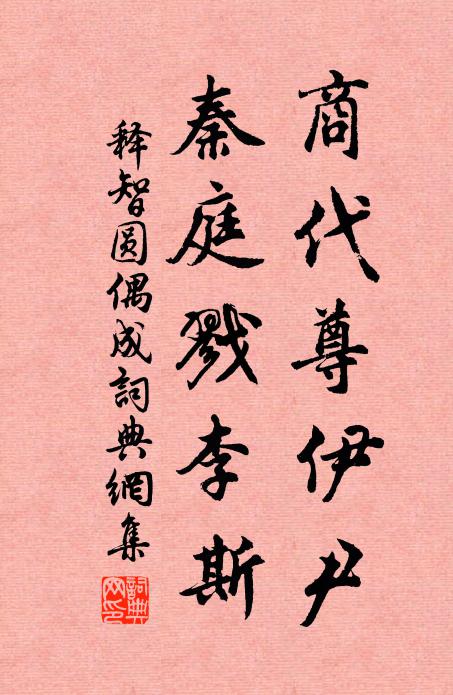 商代尊伊尹
秦庭戮李斯
释智圆偶成詞典網集
詞典網印